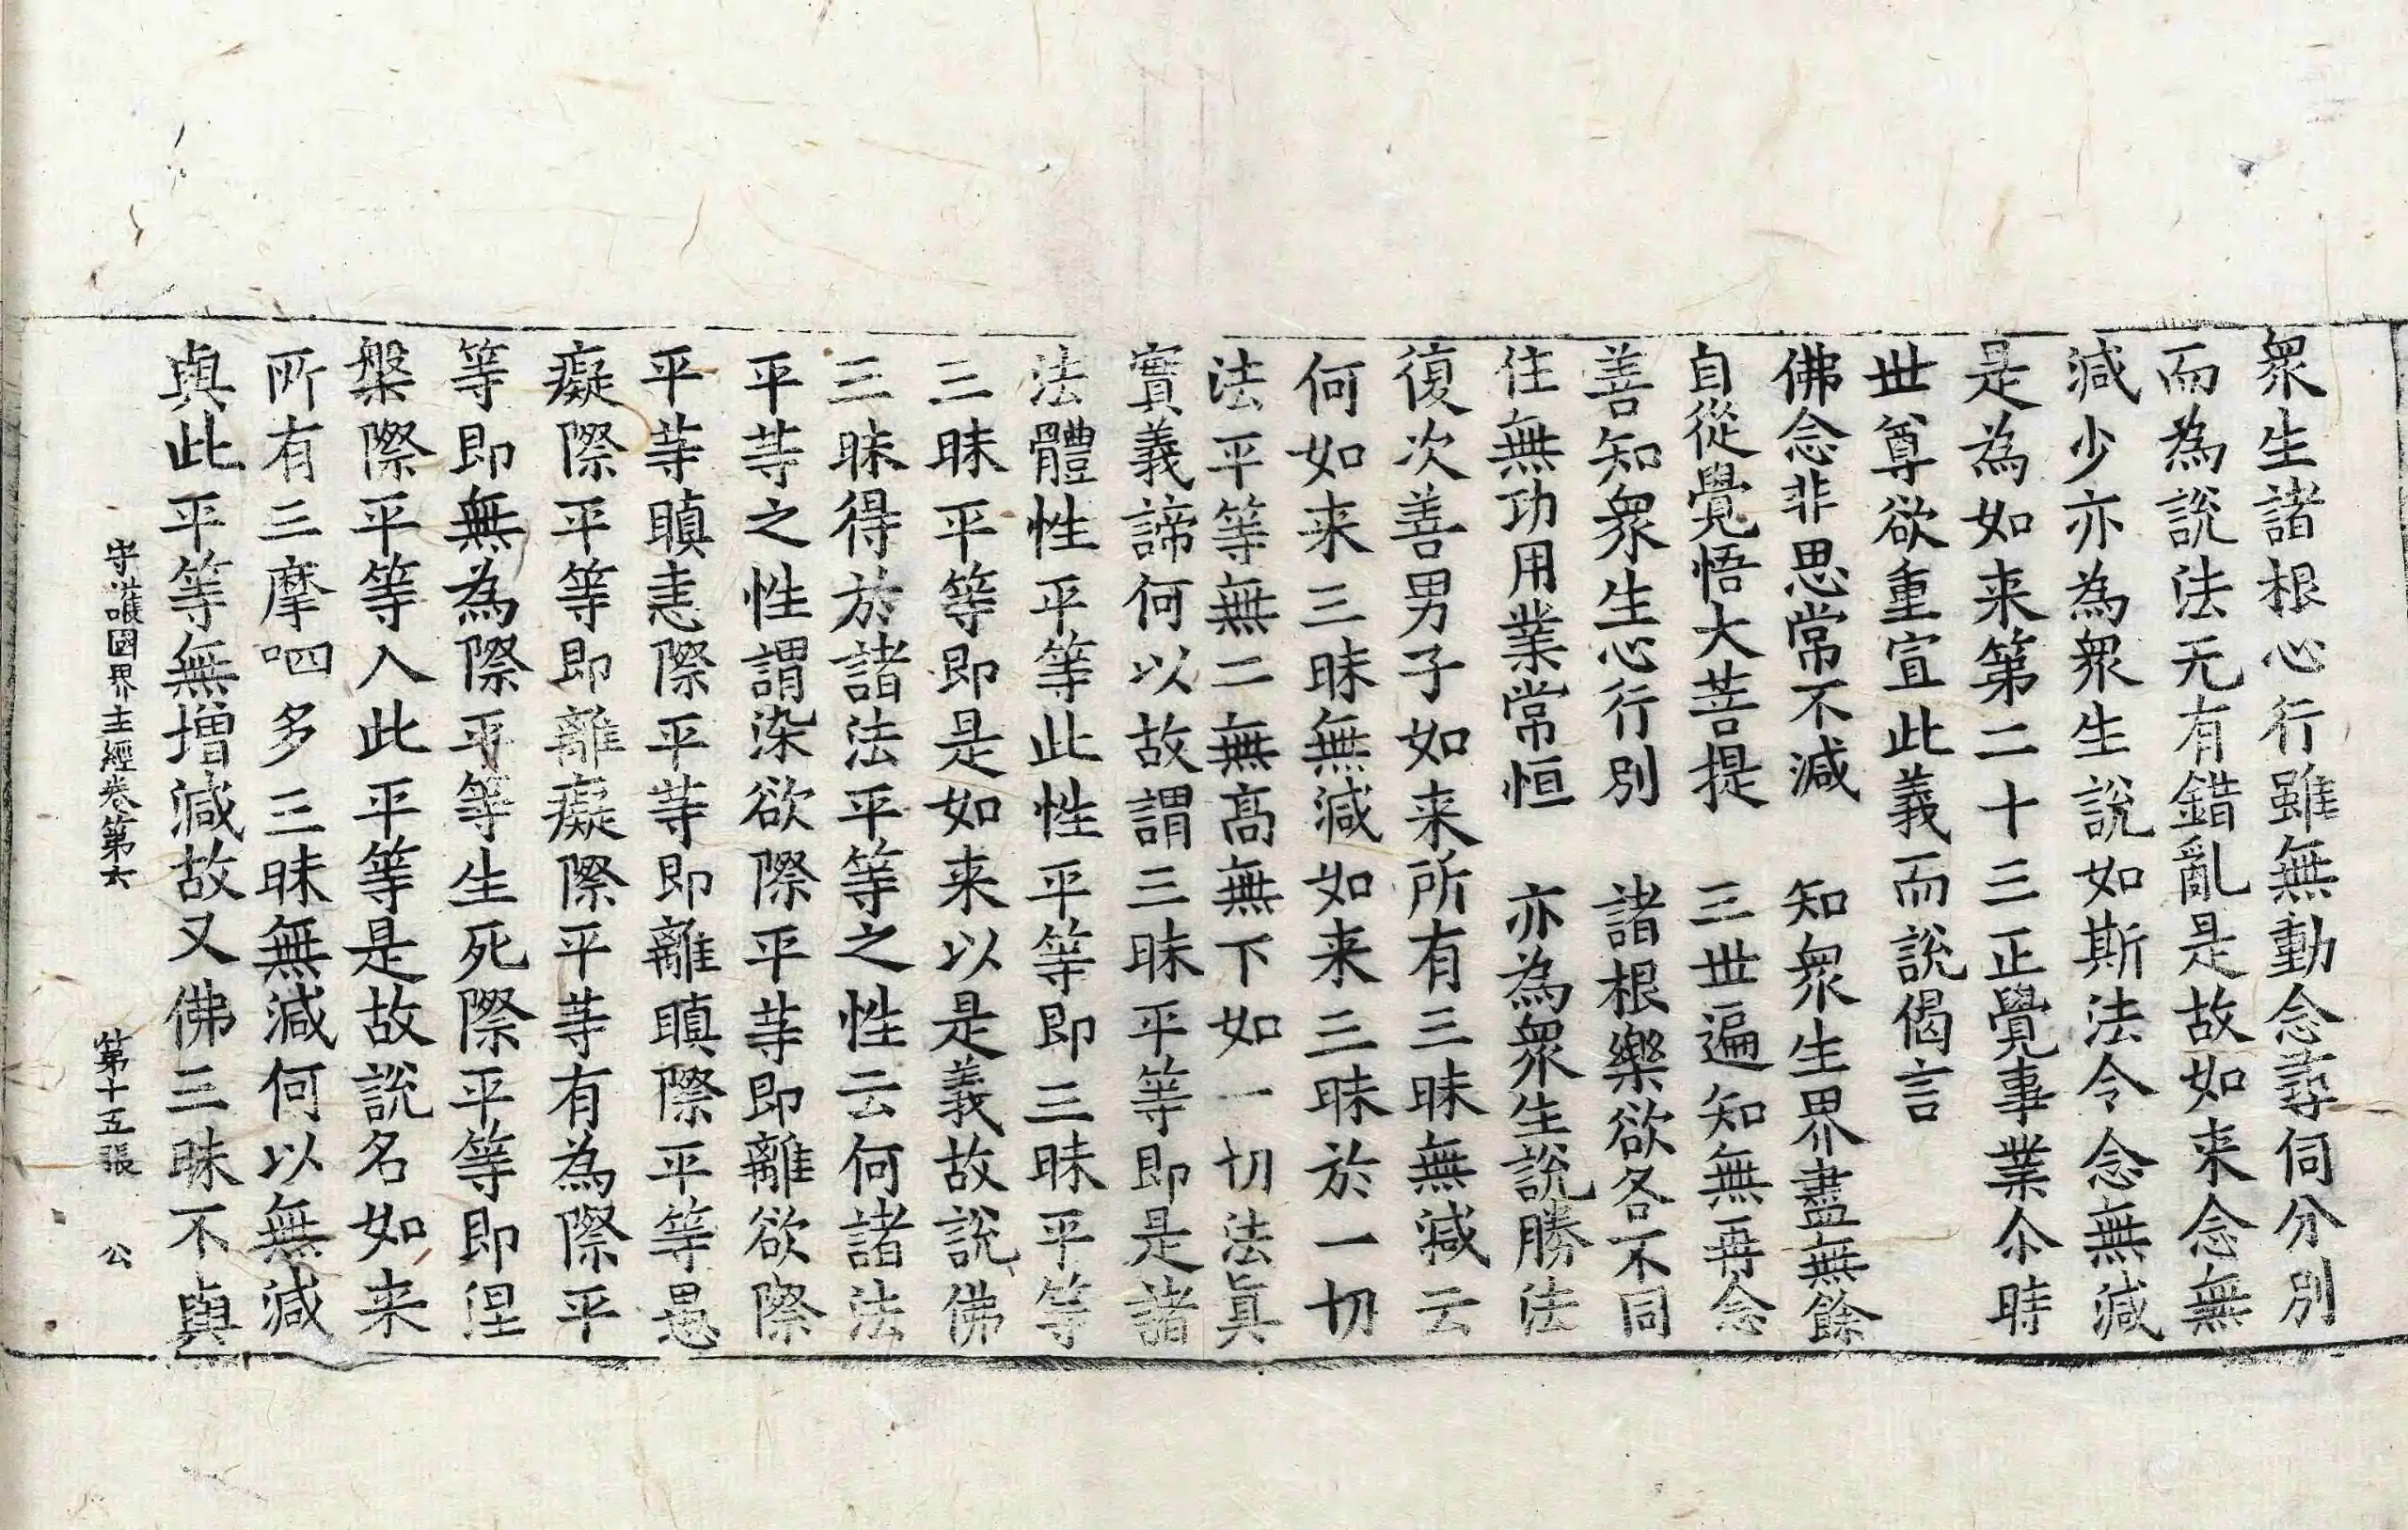 衆生諸根心行雖無動念尋伺分別
而為說法无有錯亂是故如来念無
減少亦為衆生說如斯法令念無減
是為如来第二十三正覺事業尒時
世尊欲重宣此義而說偈言
佛念非思常不減　知衆生界盡無餘
自從覺悟大菩提　三世遍知無再念
善知衆生心行別　諸根樂欲各不同
住無功用業常恒　亦為衆生說勝法
復次善男子如来所有三昧無減云
何如来三昧無減如来三昧於一切
法平等無二無髙無下如一切法眞
實義諦何以故謂三昧平等即是諸
法體性平等此性平等即三昧平等
三昧平等即是如来以是義故說佛
三昧得於諸法平等之性云何諸法
平䓁之性謂染欲際平䓁即離欲際
平䓁瞋恚際平䓁即離瞋際平等愚
癡際平等即離癡際平䓁有為際平
等即無為際平等生死際平等即涅
槃際平等入此平等是故說名如来
所有三摩呬多三昧無減何以無減
與此平等無增減故又佛三昧不與
守護國界主經卷第六　第十五張　公